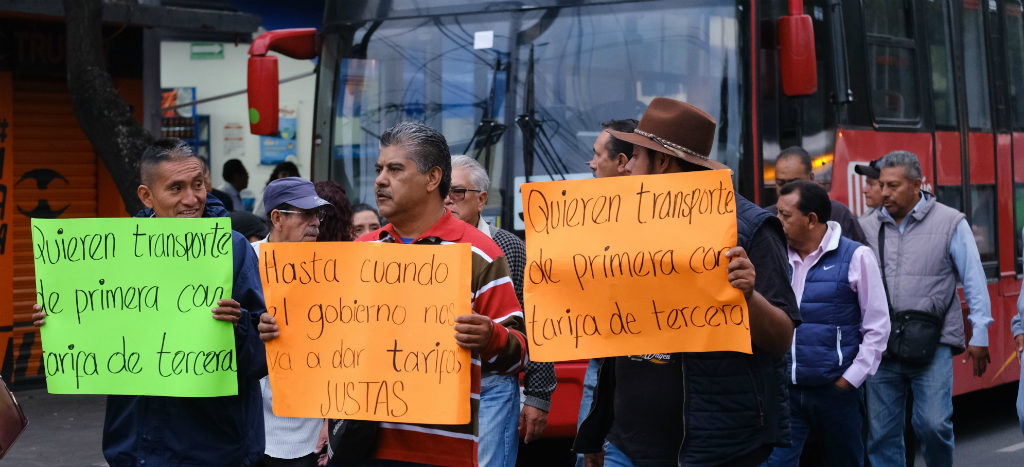 Quieren transporte
de primera con
tarifa de tercera
Hasta cuando
el gobierno nos
va a dar tarifas
JUSTAS
Quieren transporte
de primera con
tarifa de tercera